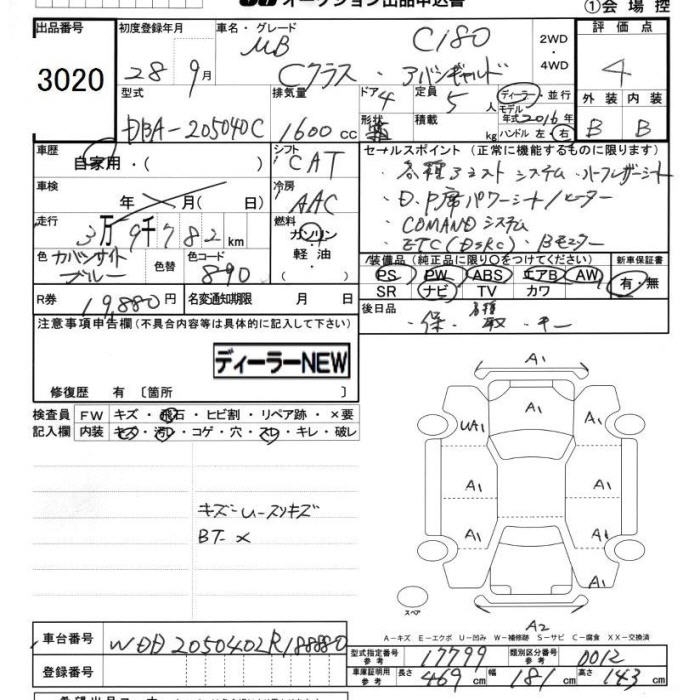 オークション出品申込書
①会場控
出品番号 初度登録年月 車名・グレード 2WD・4WD 評価点
3020 28 9月 MB C180 4
Cクラス・アバンギャルド
型式 排気量 ドア 4 定員 5人 ディーラー・並行 外装 内装
DBA-205040C 1600cc 形状 箱 積載 kg モデル年式2016年 ハンドル 左・右 B B
車歴 自家用・( ) シフト CAT セールスポイント(正常に機能するものに限ります)
・各種アシストシステム・ハーフレザーシート
車検 年 月(日) 冷房 AAC ・D.P席パワーシート/ヒーター
走行 3万9千782km 燃料 ガソリン・軽油・( ) ・COMANDシステム
・ETC(DSRC)・Bモニター
色 カバンサイトブルー 色替 色コード 890
装備品(純正品に限り○をつけてください) 新車保証書
PS PW ABS エアB AW 有・無
SR ナビ TV カワ
R券 19,880円 名変通知期限 月 日
後日品 ・保・各種取・キー
注意事項申告欄(不具合内容等は具体的に記入して下さい)
ディーラーNEW
修復歴 有〔箇所 〕
検査員 FW キズ・飛石・ヒビ割・リペア跡・×要
記入欄 内装 キズ・汚レ・コゲ・穴・スレ・キレ・破レ
キズ=U-スリキズ
BT-×
A1
A1
UA1 A1
A1 A1
A1 A1
A1
スペア
A2
A-キズ E-エクボ U-凹み W-補修跡 S-サビ C-腐食 XX-交換済
車台番号 WDD2050402R188880
型式指定番号 参考 17799 類別区分番号 参考 0012
登録番号
車庫証明用 参考 長さ 469cm 幅 181cm 高さ 143cm